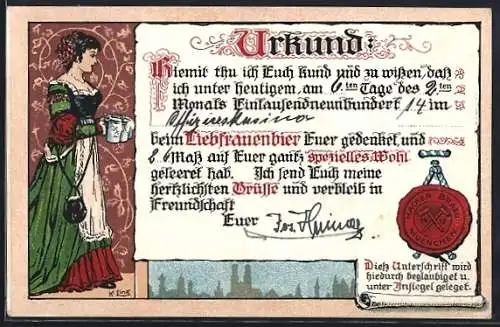 Urkund:
Hiemit thu ich Euch kund und zu wißen, daß
ich unter heutigem, am 6.ten Tage des 2.ten
Monats Eintausendneunhundert 14 im
Offizierskasino
beim Liebfrauenbier Euer gedenket, und
8 Maß auf Euer gantz spezielles Wohl
geleeret hab. Ich send Euch meine
hertzlichsten Grüsse und verbleib in
Freundschaft
Euer Jos.
HACKER BRÄU
MUENCHEN
Dieß Unterschrift wird
hiedurch beglaubiget u.
unter Insiegel geleget.